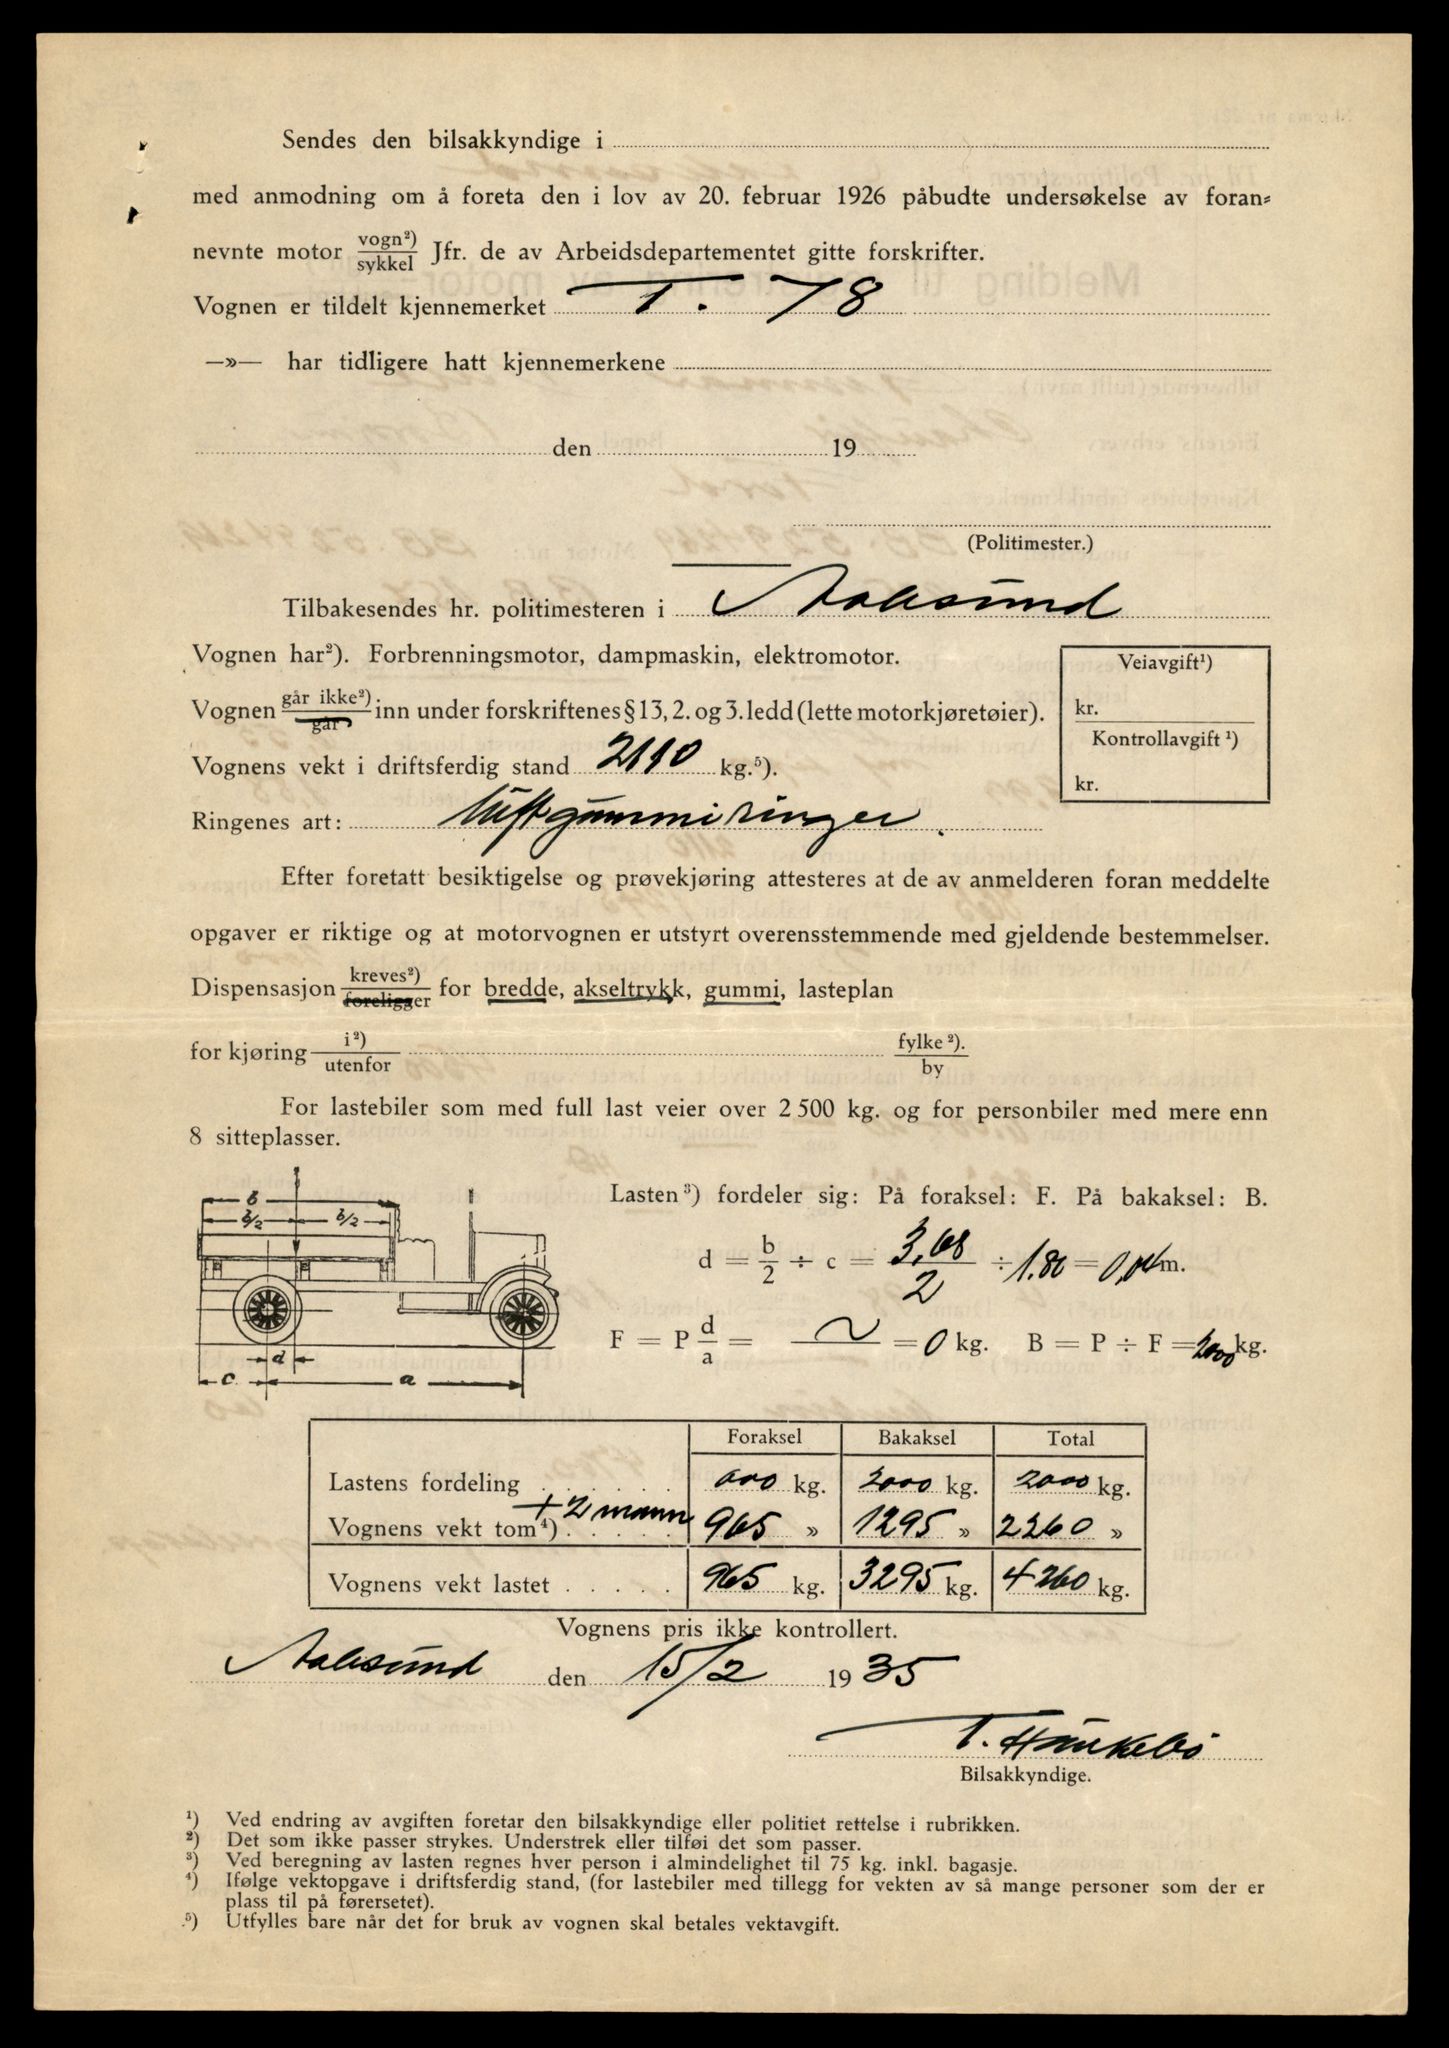 Sendes den bilsakkyndige i
med anmodning om å foreta den i lov av 20. februar 1926 påbudte undersøkelse av foran=
nevnte motor vogn²)/sykkel Jfr. de av Arbeidsdepartementet gitte forskrifter.
Vognen er tildelt kjennemerket T. 78
—»— har tidligere hatt kjennemerkene
den 19
(Politimester.)
Tilbakesendes hr. politimesteren i Aalesund
Vognen har²). Forbrenningsmotor, dampmaskin, elektromotor.
Vognen går ikke²)/går inn under forskriftenes § 13, 2. og 3. ledd (lette motorkjøretøier).
Vognens vekt i driftsferdig stand 2110 kg.⁵).
Veiavgift¹)
kr.
Kontrollavgift¹)
kr.
Ringenes art: luftgummiringer.
Efter foretatt besiktigelse og prøvekjøring attesteres at de av anmelderen foran meddelte
opgaver er riktige og at motorvognen er utstyrt overensstemmende med gjeldende bestemmelser.
Dispensasjon kreves²)/foreligger for bredde, akseltrykk, gummi, lasteplan
for kjøring i²)/utenfor fylke²)./by
For lastebiler som med full last veier over 2 500 kg. og for personbiler med mere enn
8 sitteplasser.
b
b/2 b/2
d
c a
Lasten³) fordeler sig: På foraksel: F. På bakaksel: B.
d = b/2 ÷ c = 3,68/2 ÷ 1.80 = 0,04 m.
F = P d/a = ~ = 0 kg. B = P ÷ F = 2000 kg.
Foraksel Bakaksel Total
Lastens fordeling . . . . . . 000 kg. 2000 kg. 2000 kg.
+ 2 mann
Vognens vekt tom⁴) . . . . . 965 » 1295 » 2260 »
Vognens vekt lastet . . . . . 965 kg. 3295 kg. 4260 kg.
Vognens pris ikke kontrollert.
Aalesund den 15/2 1935
T. Hunkebö
Bilsakkyndige.
¹) Ved endring av avgiften foretar den bilsakkyndige eller politiet rettelse i rubrikken.
²) Det som ikke passer strykes. Understrek eller tilføi det som passer.
³) Ved beregning av lasten regnes hver person i almindelighet til 75 kg. inkl. bagasje.
⁴) Ifølge vektopgave i driftsferdig stand, (for lastebiler med tillegg for vekten av så mange personer som der er
plass til på førersetet).
⁵) Utfylles bare når det for bruk av vognen skal betales vektavgift.